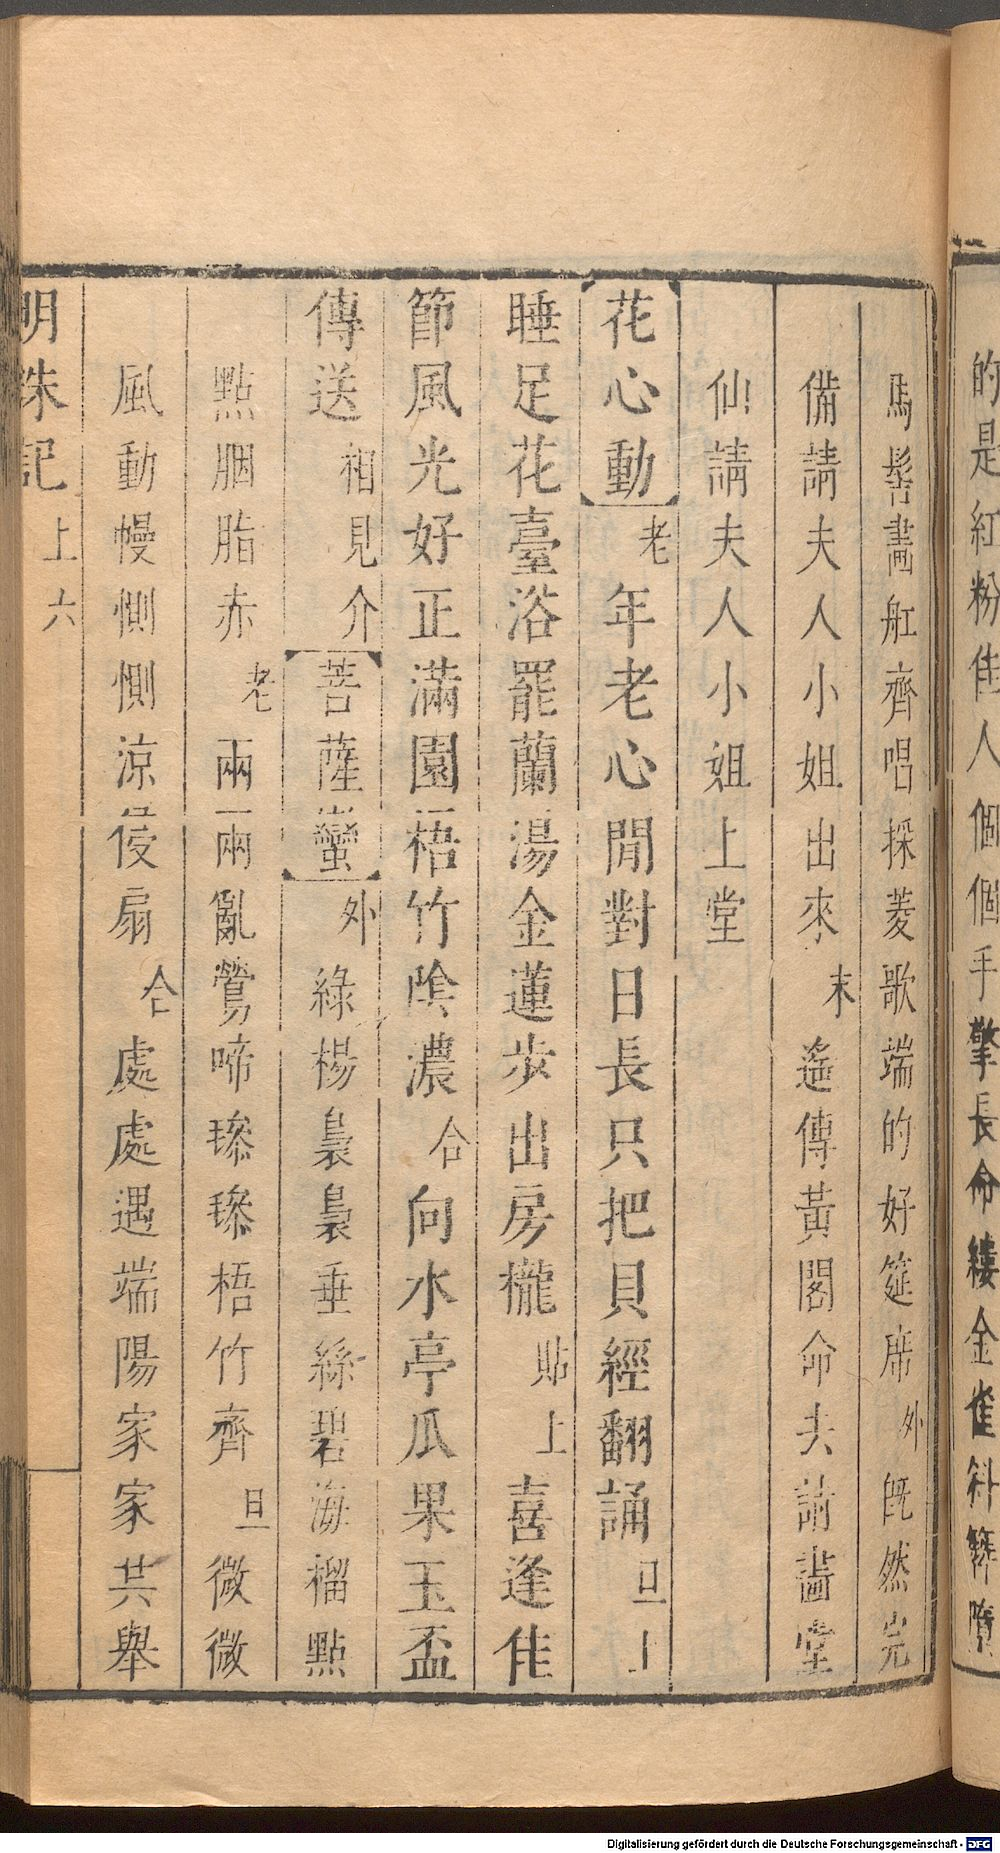 的是紅粉佳人個個手擎長命縷金雀斜簪
馬髻畫舡齊唱採菱歌端的好筵席外旣然完
備請夫人小姐出來末遙傳黃閣命去請畫堂
仙請夫人小姐上堂
花心動老年老心閒對日長只把貝經翻誦旦上
睡足花臺浴罷蘭湯金蓮步出房櫳貼上喜逢佳
節風光好正滿園梧竹陰濃合向水亭瓜果玉盃
傳送相見介菩薩蠻外綠楊裊裊垂絲碧海榴點
點胭脂赤老兩兩亂鶯啼瑽瑽梧竹齊旦微微
風動幔惻惻涼侵扇合處處遇端陽家家共舉
明珠記上六
Digitalisierung gefördert durch die Deutsche Forschungsgemeinschaft - DFG